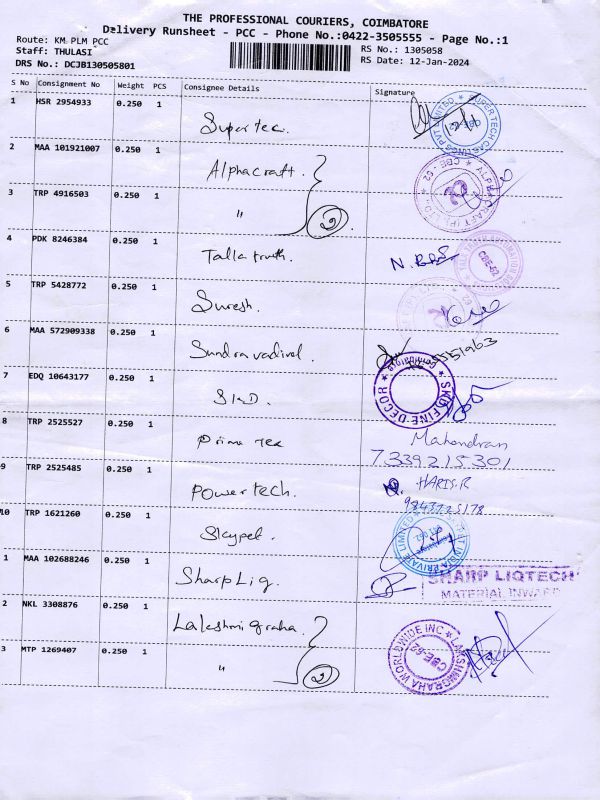 THE PROFESSIONAL COURIERS, COIMBATORE
Delivery Runsheet - PCC - Phone No.:0422-3505555 - Page No.:1
Route: KM PLM PCC
RS No.: 1305058
Staff: THULASI
RS Date: 12-Jan-2024
DRS No.: DCJB130505801
S No Consignment No Weight PCS Consignee Details Signature
1 HSR 2954933 0.250 1
Supertec.
2 MAA 101921007 0.250 1
Alphacraft.
3 TRP 4916503 0.250 1
" 2
4 PDK 8246384 0.250 1
Talla truth. N.
CBE-62
5 TRP 5428772 0.250 1
Suresh.
6 MAA 572909338 0.250 1
Sundra vadivel.
7 EDQ 10643177 0.250 1
SKD.
SKD FINE DECOR
8 TRP 2525527 0.250 1
Prime tex Mahendran
7339215301
9 TRP 2525485 0.250 1
Powertech. HARIS.R
9843725178
10 TRP 1621260 0.250 1
Skypet.
1 MAA 102688246 0.250 1
Sharp Liq.
SHARP LIQTECH
MATERIAL INWARD
2 NKL 3308876 0.250 1
Lakshmigraha
LAKSHMIGRAHA WORLDWIDE INC
CBE-62
3 MTP 1269407 0.250 1
" 2